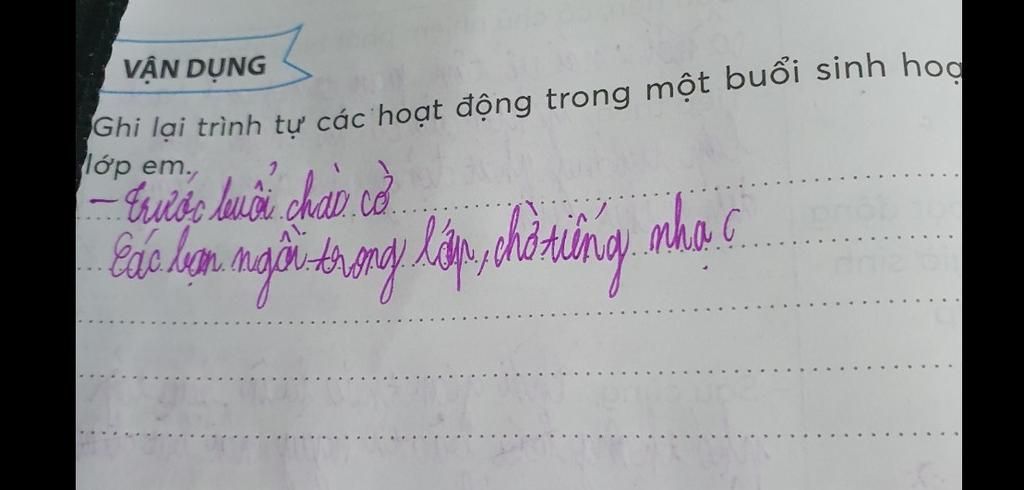 VẬN DỤNG
Ghi lại trình tự các hoạt động trong một buổi sinh hoạ
lớp em.
- Trước buổi chào cờ
Các bạn ngồi trong lớp, chờ tiếng nhạc